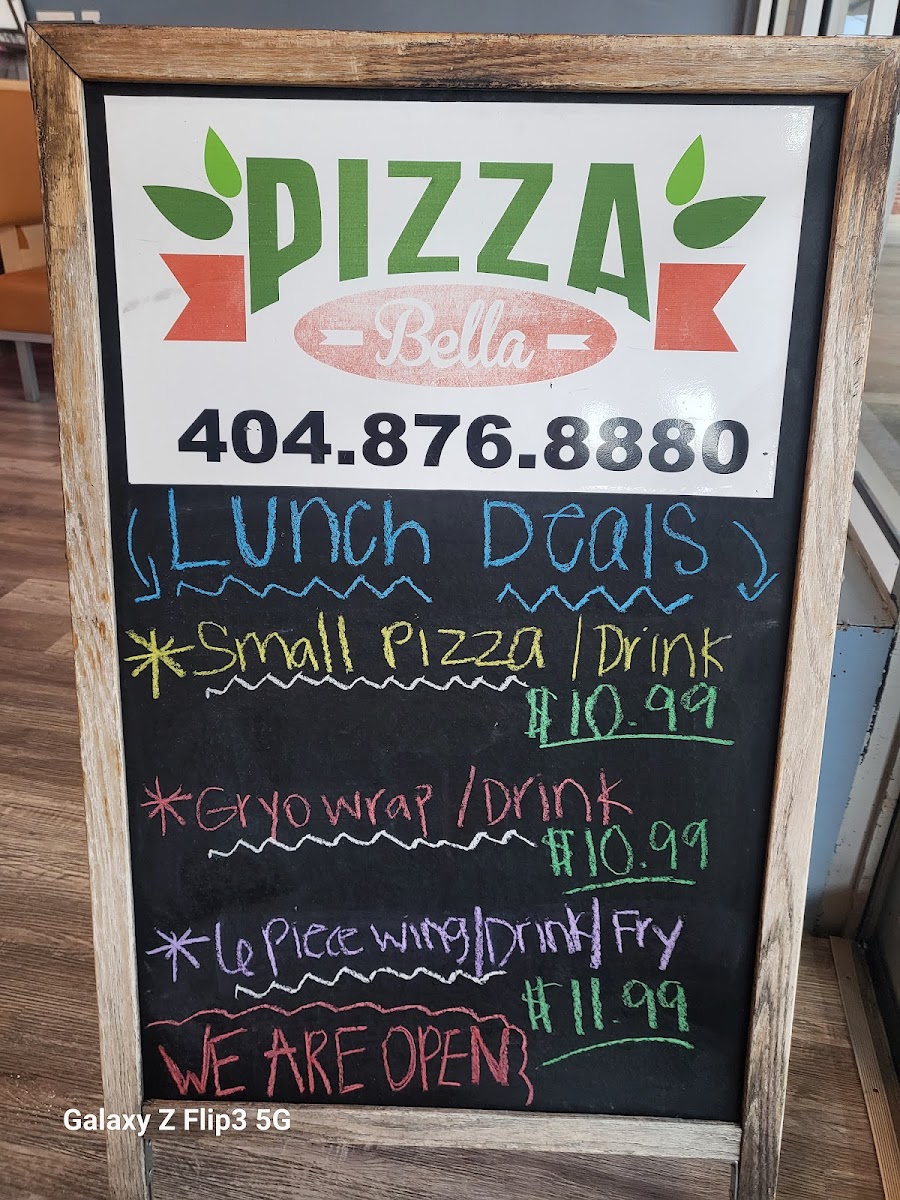 PIZZA
Bella
404.876.8880
Lunch Deals
*Small Pizza /Drink
$10.99
*Gryo wrap /Drink
$10.99
*6 Piece wing/Drink/Fry
$11.99
WE ARE OPEN
Galaxy Z Flip3 5G